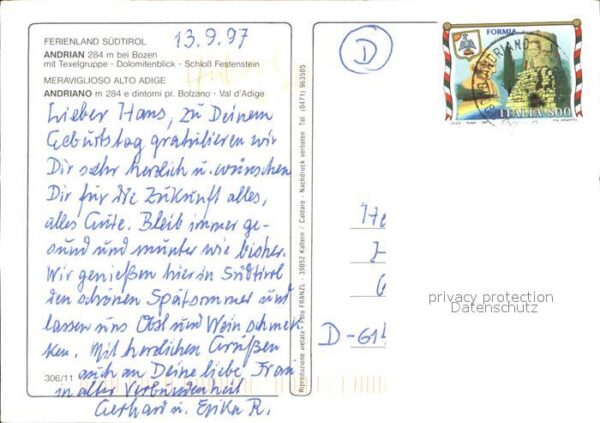 FERIENLAND SÜDTIROL
ANDRIAN 284 m bei Bozen
mit Texelgruppe - Dolomitenblick - Schloß Festenstein
MERAVIGLIOSO ALTO ADIGE
ANDRIANO m 284 e dintorni pr. Bolzano - Val d'Adige
13.9.97
Lieber Hans, zu Deinem
Geburtstag gratulieren wir
Dir sehr herzlich u. wünschen
Dir für die Zukunft alles,
alles Gute. Bleib immer ge-
sund und munter wie bisher.
Wir genießen hier in Südtirol
den schönen Spätsommer und
lassen uns Obst und Wein schmek-
ken. Mit herzlichen Grüßen
auch an Deine liebe Frau
in alter Verbundenheit
Gerhard u. Erika R.
306/11
Riproduzione vietata - Foto FRANZL - 39052 Kaltern / Caldaro - Nachdruck verboten Tel. (0471) 963505
D
FORMIA
ITALIA 800
ANDRIANO
He
H
D-614
privacy protection
Datenschutz